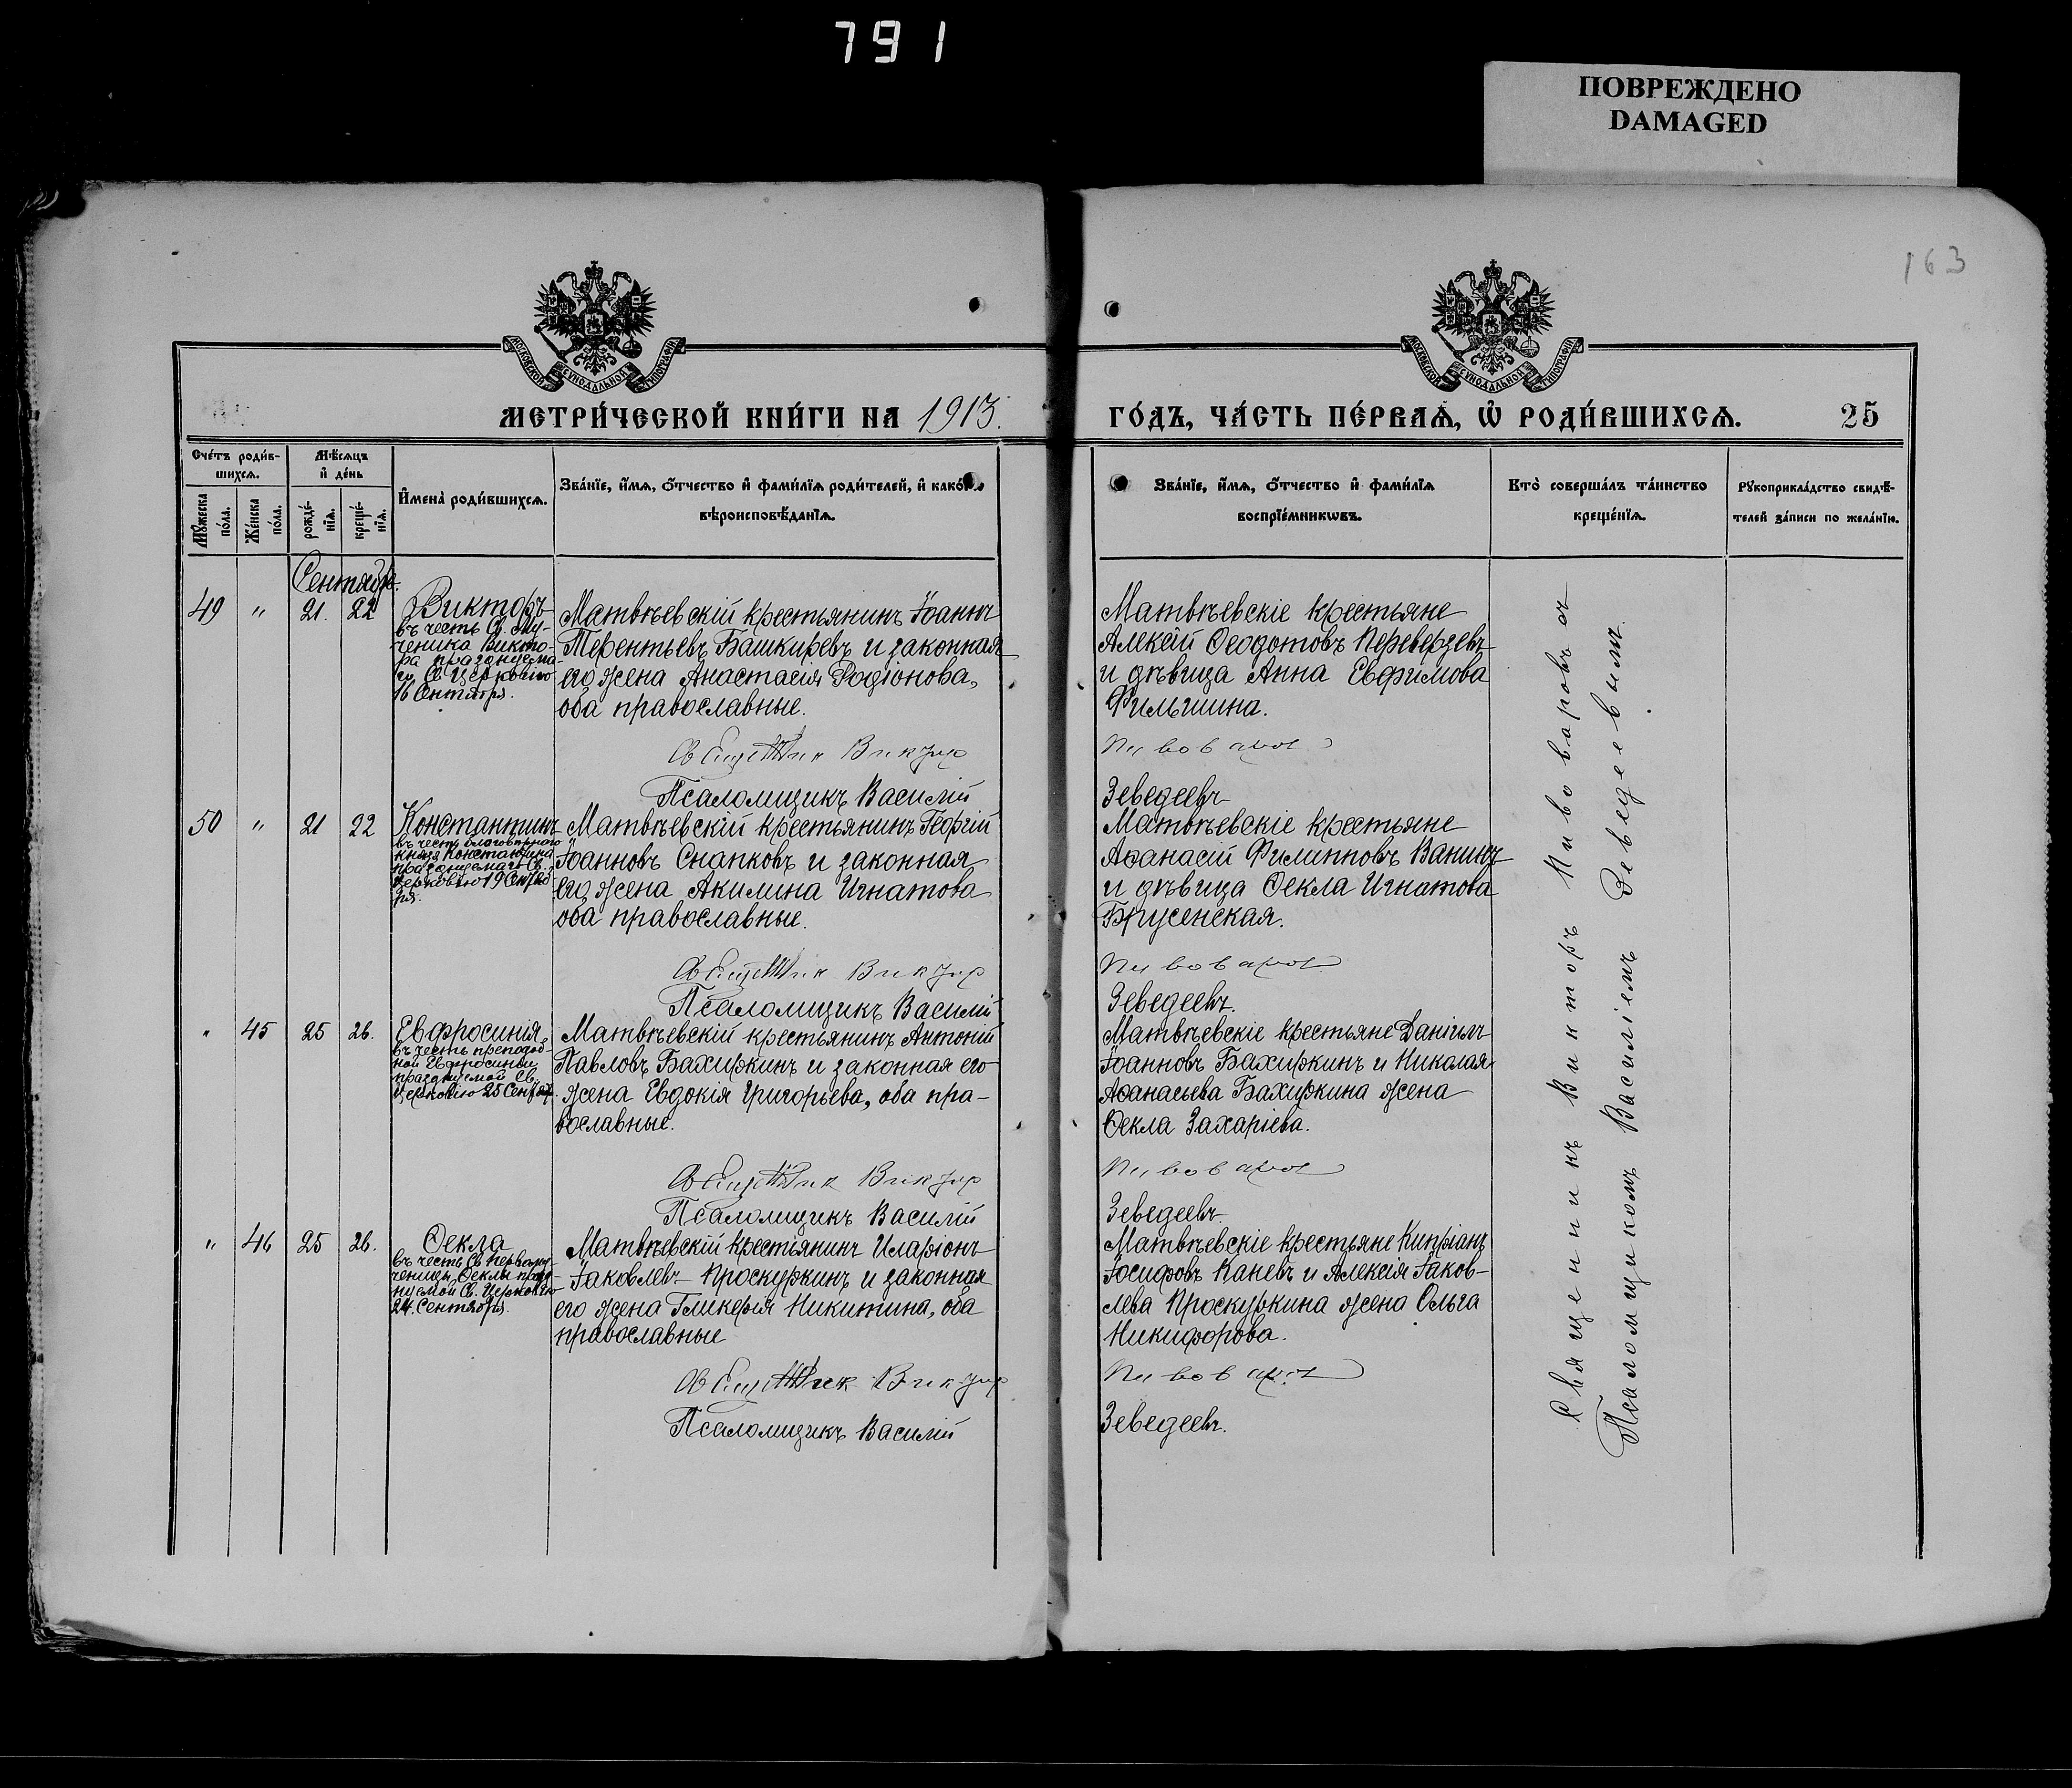 791
ПОВРЕЖДЕНО
DAMAGED
163
МОСКОВСКОЙ СУНОДАЛЬНОЙ ТИПОГРАФІИ
МОСКОВСКОЙ СУНОДАЛЬНОЙ ТИПОГРАФІИ
МЕТРИ́ЧЕСКОЙ КНИ́ГИ НА 1913.
ГО́ДЪ, ЧА́СТЬ ПЕ́РВАѦ, Ѡ҆ РОДИ́ВШИХСѦ. 25
Сче́тъ роди́в-
шихсѧ.
Мꙋ́жеска по́ла.
Же́нска по́ла.
Мѣ́сѧцъ
и҆ де́нь
рожде́-
нїѧ.
креще́-
нїѧ.
И҆мена̀ роди́вшихсѧ.
Зва́нїе, и҆́мѧ, ѻ҆́тчество и҆ фами́лїѧ роди́телей, и҆ како́гѡ
вѣроисповѣ́данїѧ.
Зва́нїе, и҆́мѧ, ѻ҆́тчество и҆ фами́лїѧ
воспрїе́мникѡвъ.
Кто̀ соверша́лъ та́инство
креще́нїѧ.
Рꙋкоприкла́дство свидѣ́-
телей за́писи по жела́нїю.
Сентябрь.
49 " 21. 22
Викторъ
въ честь Св. Му-
ченика Викто-
ра празднуема-
го Св. Церковію
16 Сентября.
Матвѣевскій крестьянинъ Іоаннъ
Терентьевъ Башкиревъ и законная
его жена Анастасія Родіонова,
оба православные.
Священникъ Викторъ
Псаломщикъ Василій
Матвѣевскіе крестьяне
Алексій Ѳеодотовъ Переверзевъ
и дѣвица Анна Евфимова
Фильшина.
Пивоваровъ
Зеведеевъ
50 " 21 22
Константинъ
въ честь благовѣрнаго
князя Константина
празднуемаго Св.
Церковію 19 Сентяб-
ря.
Матвѣевскій крестьянинъ Георгій
Іоанновъ Снапковъ и законная
его жена Акилина Игнатова
оба православные.
Священникъ Викторъ
Псаломщикъ Василій
Матвѣевскіе крестьяне
Аѳанасій Филипповъ Ванинъ
и дѣвица Ѳекла Игнатова
Брусенская.
Пивоваровъ
Зеведеевъ.
" 45 25 26.
Евфросинія
въ честь преподоб-
ной Евфросиніи
празднуемой Св.
Церковію 25 Сентяб.
Матвѣевскій крестьянинъ Антоній
Павловъ Бахиркинъ и законная его
жена Евдокія Григорьева, оба пра-
вославные.
Священникъ Викторъ
Псаломщикъ Василій
Матвѣевскіе крестьяне Даніилъ
Іоанновъ Бахиркинъ и Николая
Аѳанасьева Бахиркина жена
Ѳекла Захаріева.
Пивоваровъ
Зеведеевъ
" 46 25 26.
Ѳекла
въ честь Св. Первому-
ченицы Ѳеклы празд-
нуемой Св. Церковію
24. Сентября.
Матвѣевскій крестьянинъ Иларіонъ
Іаковлевъ Проскуркинъ и законная
его жена Гликерія Никитина, оба
православные
Священникъ Викторъ
Псаломщикъ Василій
Матвѣевскіе крестьяне Кипріанъ
Іосифовъ Каневъ и Алексія Іаков-
лева Проскуркина жена Ольга
Никифорова.
Пивоваровъ
Зеведеевъ.
Священникъ Викторъ Пивоваровъ съ
Псаломщикомъ Василіемъ Зеведеевымъ.